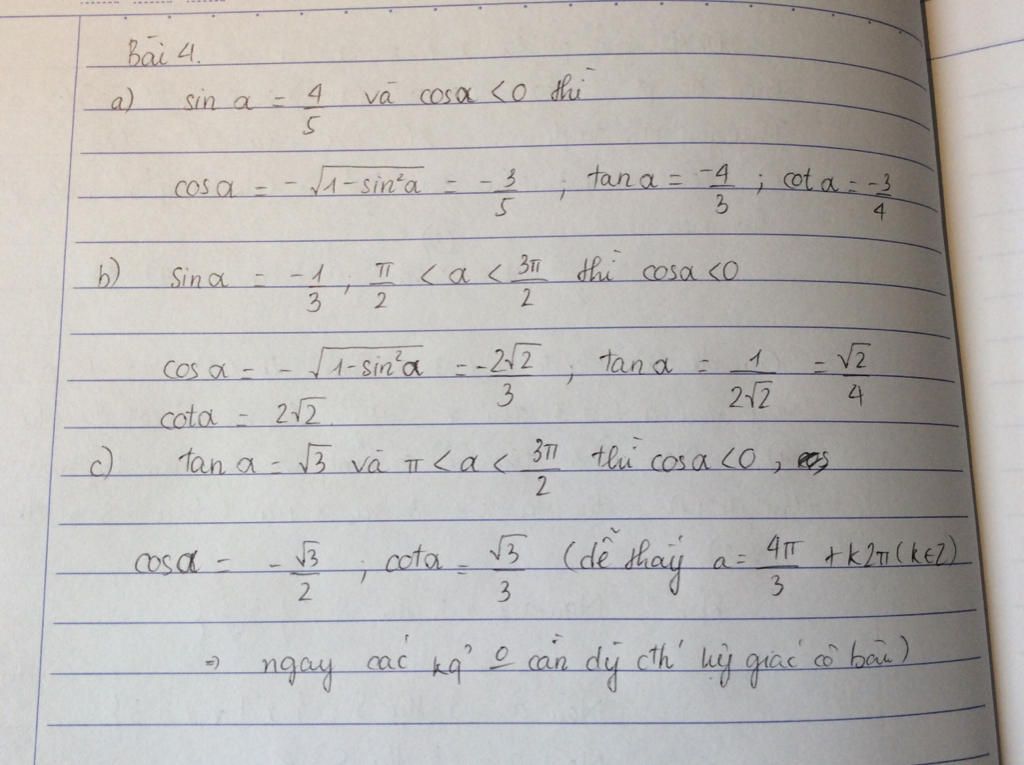 Bài 4.
a) sin a = 4/5 và cosa < 0 thì
cosa = -√(1-sin²a) = -3/5 ; tan a = -4/3 ; cot a = -3/4
b) sin a = -1/3 , π/2 < a < 3π/2 thì cosa < 0
cos a = -√(1-sin²a) = -2√2/3 ; tan a = 1/2√2 = √2/4
cota = 2√2
c) tan a = √3 và π < a < 3π/2 thì cosa < 0 ,
cosa = -√3/2 ; cota = √3/3 (dễ thấy a = 4π/3 + k2π (k∈Z)
⇒ ngay các kq' o cần dg cth' lượng giác cơ bản)